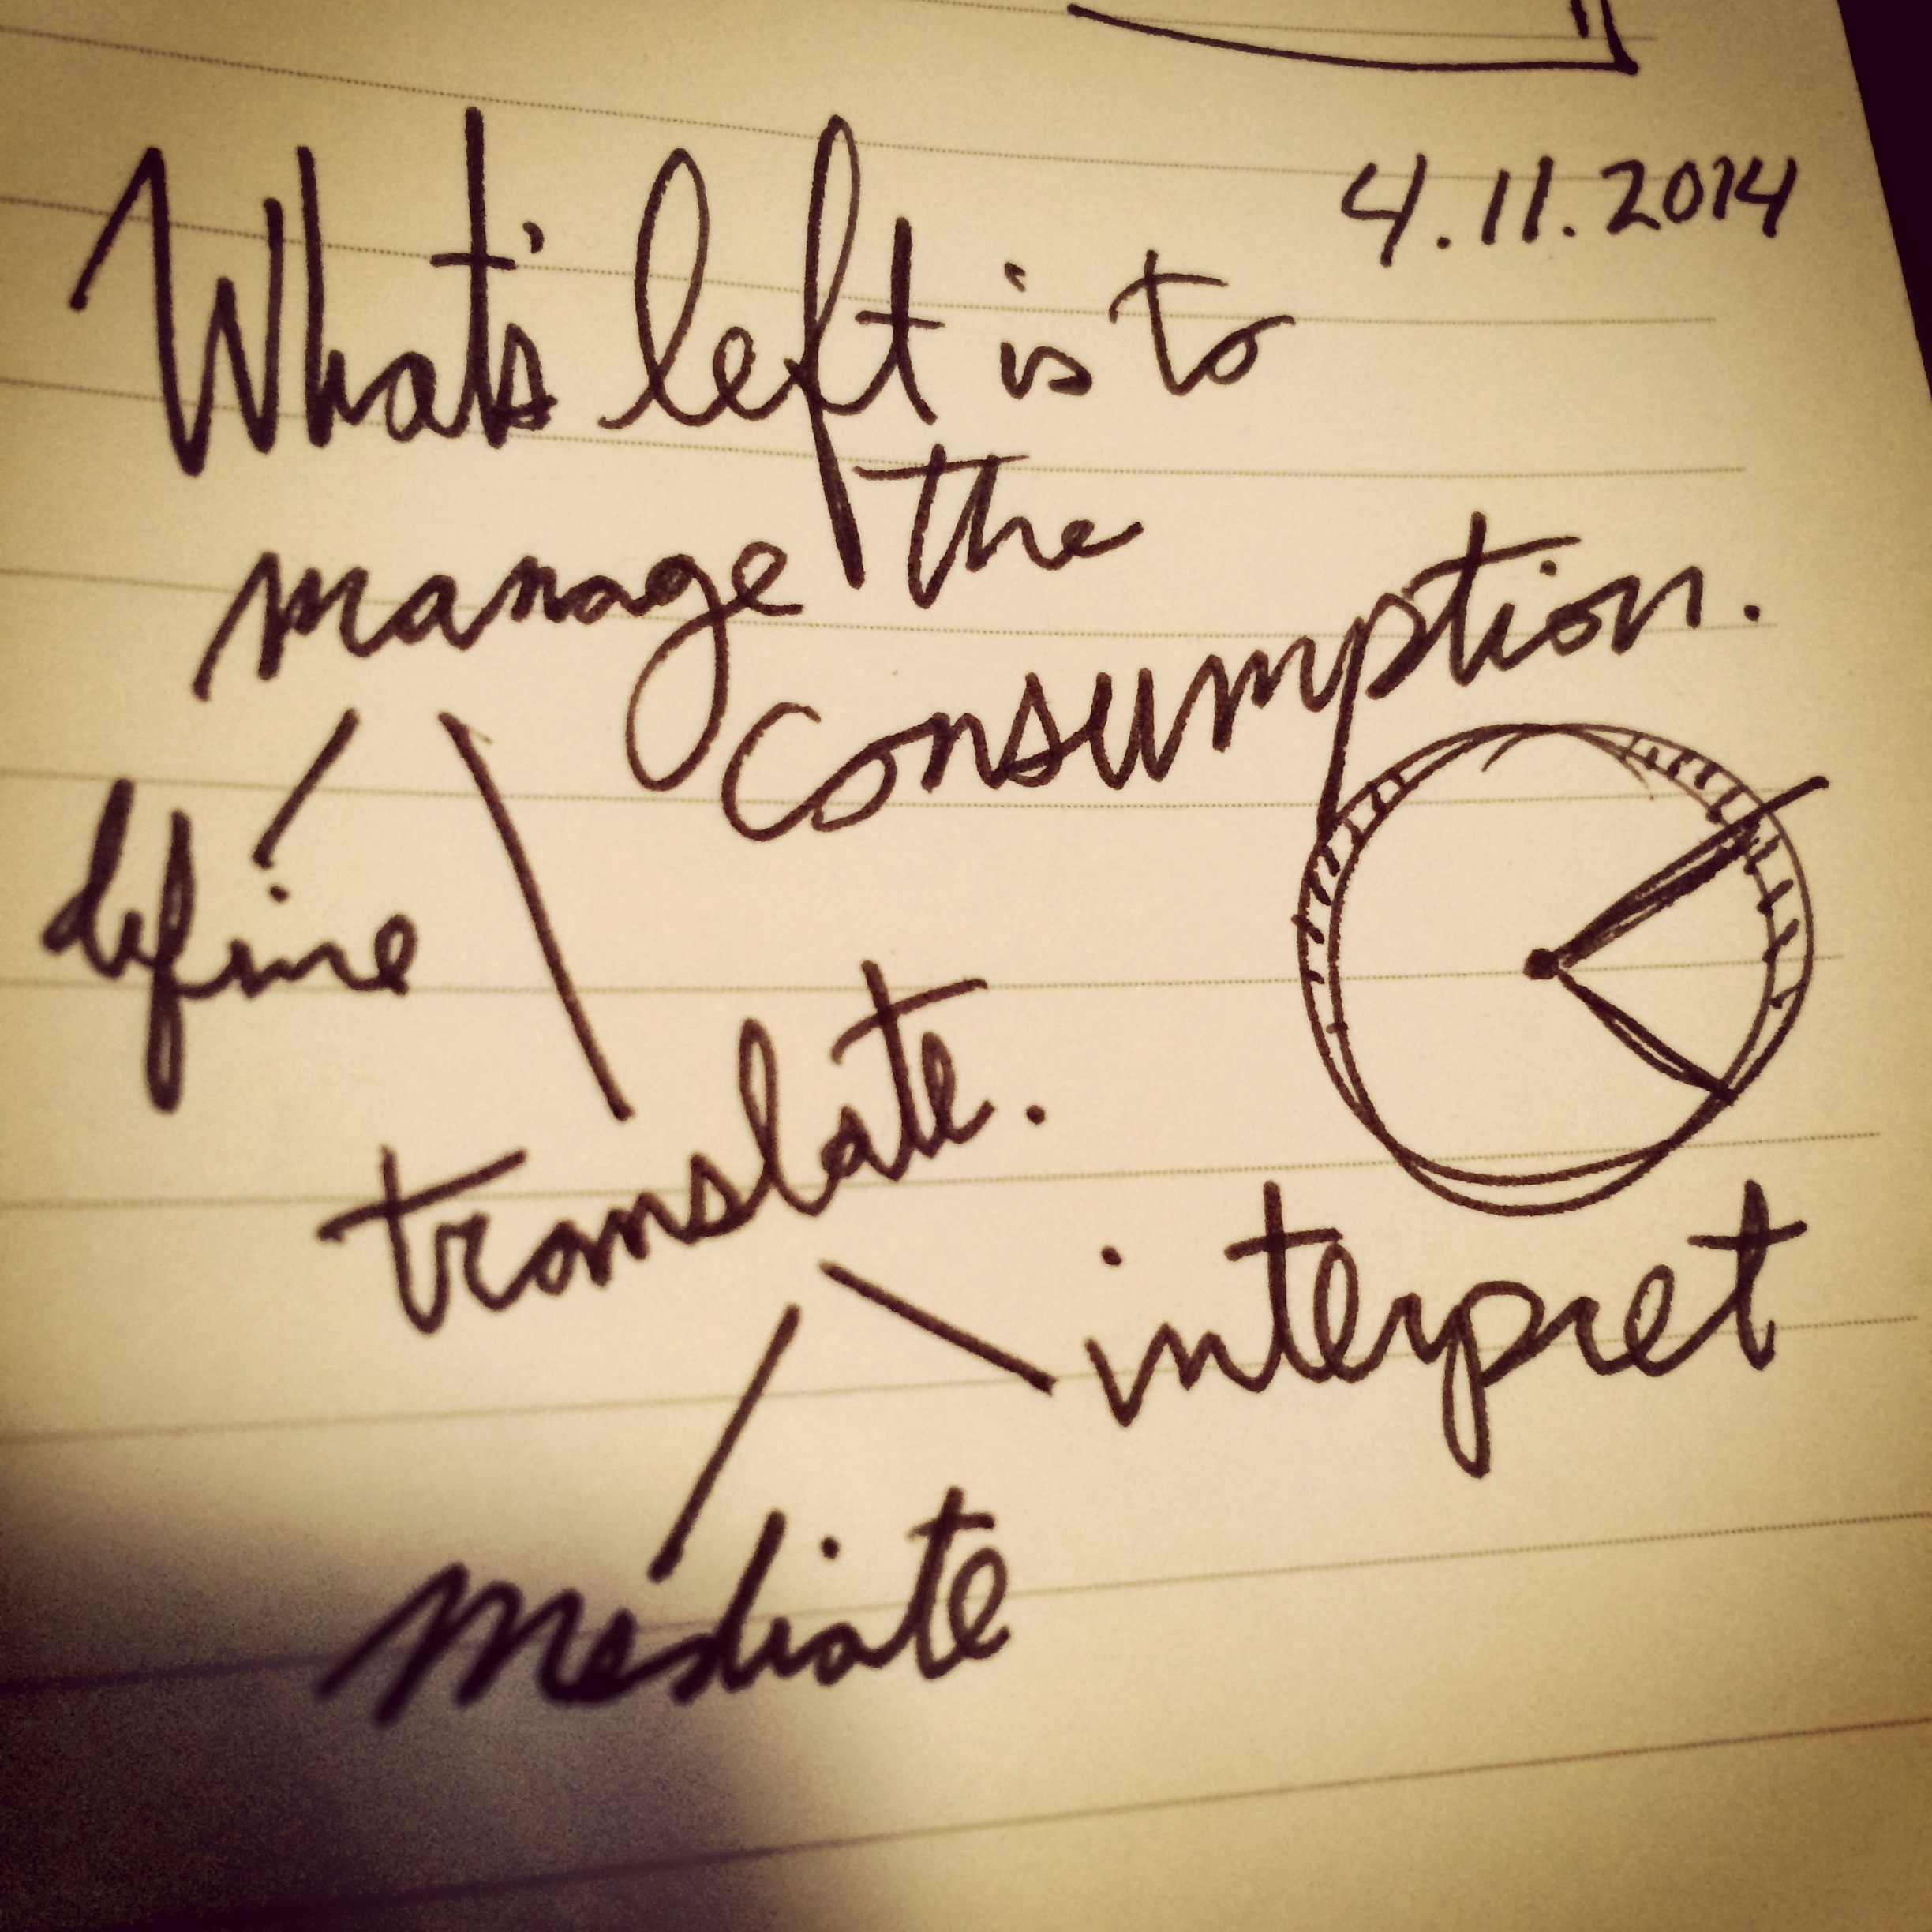 4.11.2014
What's left is to
manage the
consumption.
define
translate.
interpret
mediate